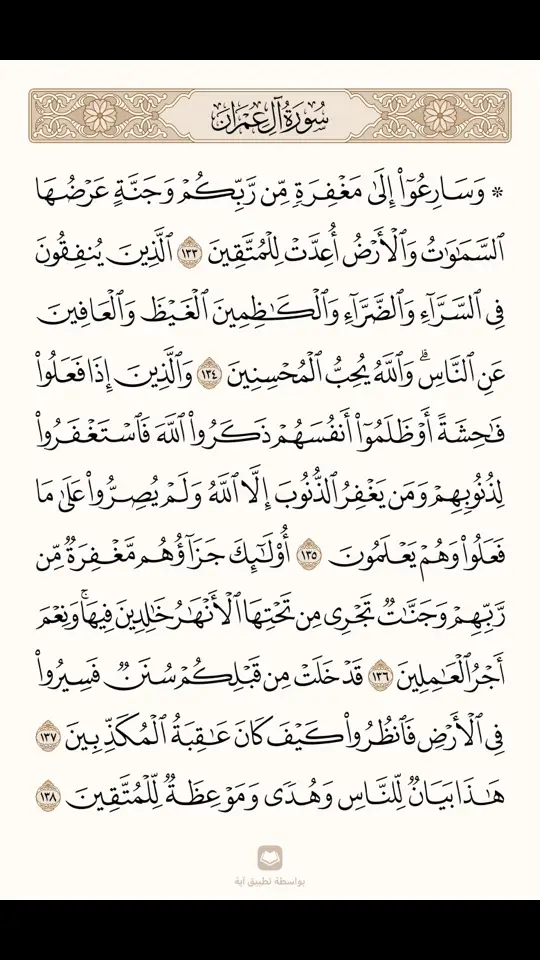 سُورَةُ آلِ عِمۡرَانَ
۞ وَسَارِعُوٓاْ إِلَىٰ مَغۡفِرَةٖ مِّن رَّبِّكُمۡ وَجَنَّةٍ عَرۡضُهَا
ٱلسَّمَٰوَٰتُ وَٱلۡأَرۡضُ أُعِدَّتۡ لِلۡمُتَّقِينَ ١٣٣ ٱلَّذِينَ يُنفِقُونَ
فِي ٱلسَّرَّآءِ وَٱلضَّرَّآءِ وَٱلۡكَٰظِمِينَ ٱلۡغَيۡظَ وَٱلۡعَافِينَ
عَنِ ٱلنَّاسِۗ وَٱللَّهُ يُحِبُّ ٱلۡمُحۡسِنِينَ ١٣٤ وَٱلَّذِينَ إِذَا فَعَلُواْ
فَٰحِشَةً أَوۡ ظَلَمُوٓاْ أَنفُسَهُمۡ ذَكَرُواْ ٱللَّهَ فَٱسۡتَغۡفَرُواْ
لِذُنُوبِهِمۡ وَمَن يَغۡفِرُ ٱلذُّنُوبَ إِلَّا ٱللَّهُ وَلَمۡ يُصِرُّواْ عَلَىٰ مَا
فَعَلُواْ وَهُمۡ يَعۡلَمُونَ ١٣٥ أُوْلَٰٓئِكَ جَزَآؤُهُم مَّغۡفِرَةٞ مِّن
رَّبِّهِمۡ وَجَنَّٰتٞ تَجۡرِي مِن تَحۡتِهَا ٱلۡأَنۡهَٰرُ خَٰلِدِينَ فِيهَاۚ وَنِعۡمَ
أَجۡرُ ٱلۡعَٰمِلِينَ ١٣٦ قَدۡ خَلَتۡ مِن قَبۡلِكُمۡ سُنَنٞ فَسِيرُواْ
فِي ٱلۡأَرۡضِ فَٱنظُرُواْ كَيۡفَ كَانَ عَٰقِبَةُ ٱلۡمُكَذِّبِينَ ١٣٧
هَٰذَا بَيَانٞ لِّلنَّاسِ وَهُدٗى وَمَوۡعِظَةٞ لِّلۡمُتَّقِينَ ١٣٨
بواسطة تطبيق آية